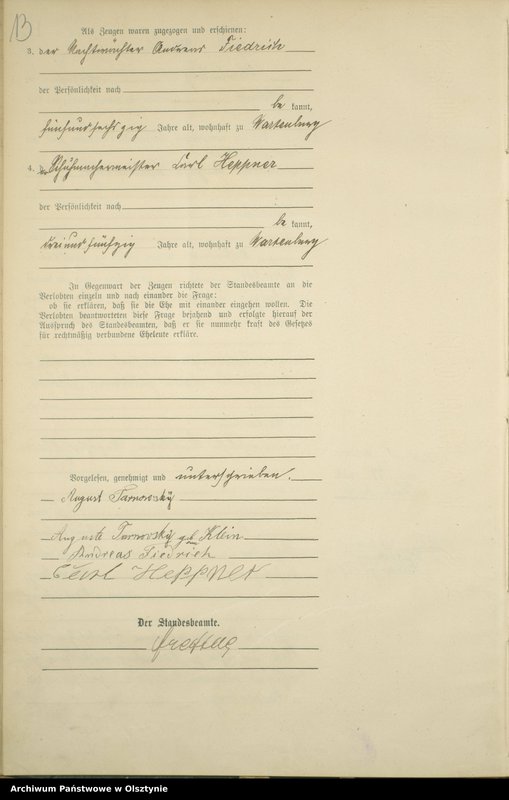 13
Als Zeugen waren zugezogen und erschienen:
3. der Nachtwächter Andreas Tiedrich
der Persönlichkeit nach
be kannt,
fünfundsechzig Jahre alt, wohnhaft zu Wartenburg
4. d Schuhmachermeister Carl Heppner
der Persönlichkeit nach
be kannt,
dreiundfünfzig Jahre alt, wohnhaft zu Wartenburg
In Gegenwart der Zeugen richtete der Standesbeamte an die
Verlobten einzeln und nach einander die Frage:
ob sie erklären, daß sie die Ehe mit einander eingehen wollen. Die
Verlobten beantworteten diese Frage bejahend und erfolgte hierauf der
Ausspruch des Standesbeamten, daß er sie nunmehr kraft des Gesetzes
für rechtmäßig verbundene Eheleute erkläre.
Vorgelesen, genehmigt und unterschrieben.
August Tarnowsky
Auguste Tarnovsky geb Klein
Andreas Tiedrich
Carl Heppner
Der Standesbeamte.
Freitag
Archiwum Państwowe w Olsztynie